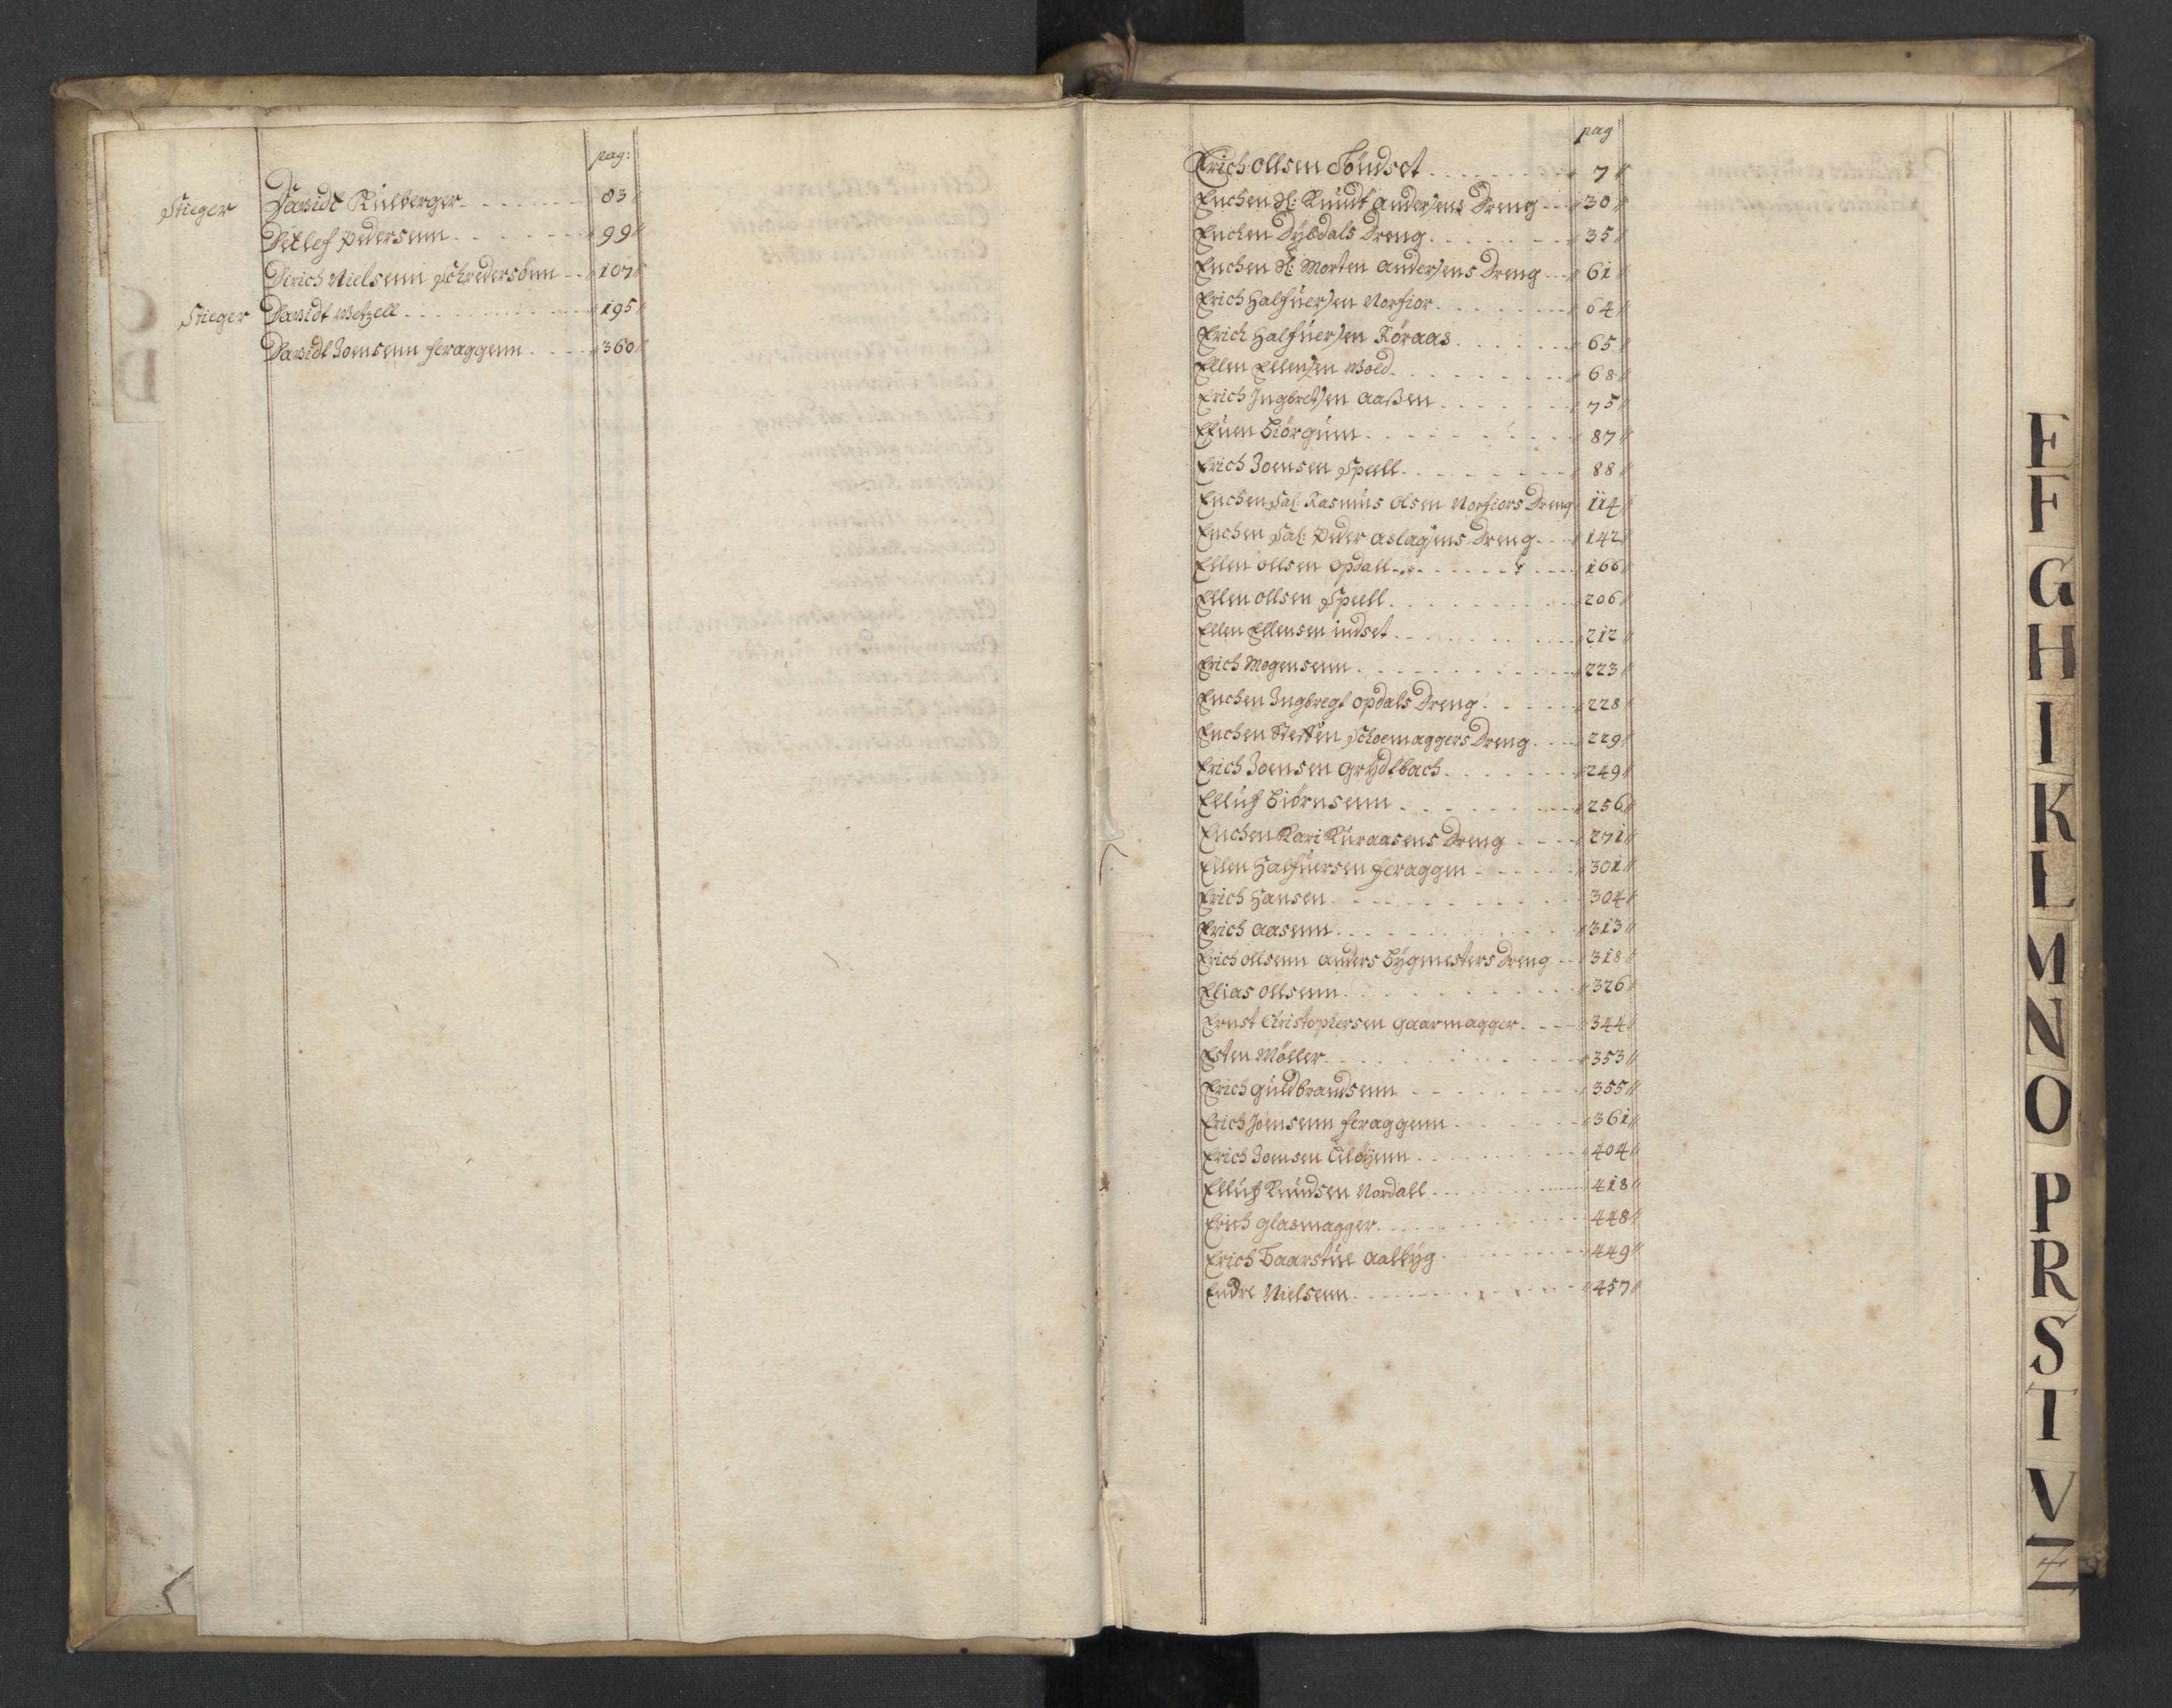 pag:
Stieger Davidt Külberger 83
Ditlef Pedersenn 99
Dirich Nielsenn Schredersönn 107
Stieger Davidt Wetzell 195
Davidt Joensenn feraggenn 360
pag
Erich Ollsen Tönset 7
Enchen H: Knudt Andersens Dreng 30
Enchen Dybdals Dreng 35
Enchen H: Morten Andersens Dreng 61
Erich Halfuersen Norfior 64
Erich Halfuersen Röraas 65
Ellen Ellensen Wold 68
Erich Ingbretsen Aaßen 75
Efuen Biörgum 87
Erich Joensen Speell 88
Enchen Sal: Rasmus Olsen Norfiors Dreng 114
Enchen Sal: Peder Aslagsens Dreng 142
Ellen Ollsen Opdall 166
Ellen Ollsen Speell 206
Ellen Ellensen indset 212
Erich Mogensenn 223
Enchen Ingbregt Opdals Dreng 228
Enchen Steffen Schoemaggers Dreng 229
Erich Joensen Grydtbach 249
Elluf Biörnsenn 256
Enchen Kari Kuraasens Dreng 271
Ellen Halfuersen feraggen 301
Erich Hansen 304
Erich Aasenn 313
Erich Ollsenn Anders Bygmesters Dreng 318
Elias Ollsenn 326
Ernst Christophersen Gaarmagger 344
Esten Möller 353
Erich Guldbrandsenn 355
Erich Joensenn feraggenn 361
Erich Joensen 404
Elluf Knudsen Nordall 418
Erich Glasmagger 448
Erich Baarstue Aalbyg 449
Endre Nielsenn 457
E
F
G
H
I
K
L
M
N
O
P
R
S
T
V
Z